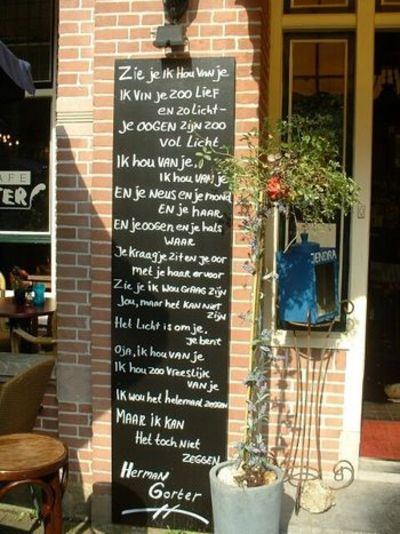 Zie je ik hou van je
ik vin je zoo lief
en zo licht-
je oogen zijn zoo
vol licht
ik hou van je,
ik hou van je
En je neus en je mond
en je haar
en je oogen en je hals
waar
Je kraagje zit en je oor
met je haar er voor
Zie je ik wou graag zijn
jou, maar het kan niet
zijn
Het licht is om je,
je bent
Oja, ik hou van je
ik hou zoo vreeslijk
van je
ik wou het helemaal zeggen
Maar ik kan
Het toch niet
zeggen
Herman
Gorter
CAFE
TER